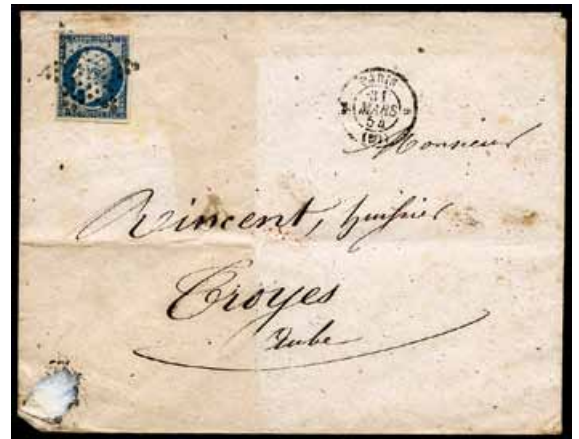 PARIS
31
MARS
54
(60)
Monsieur
Vincent, huissier
Troyes
Aube